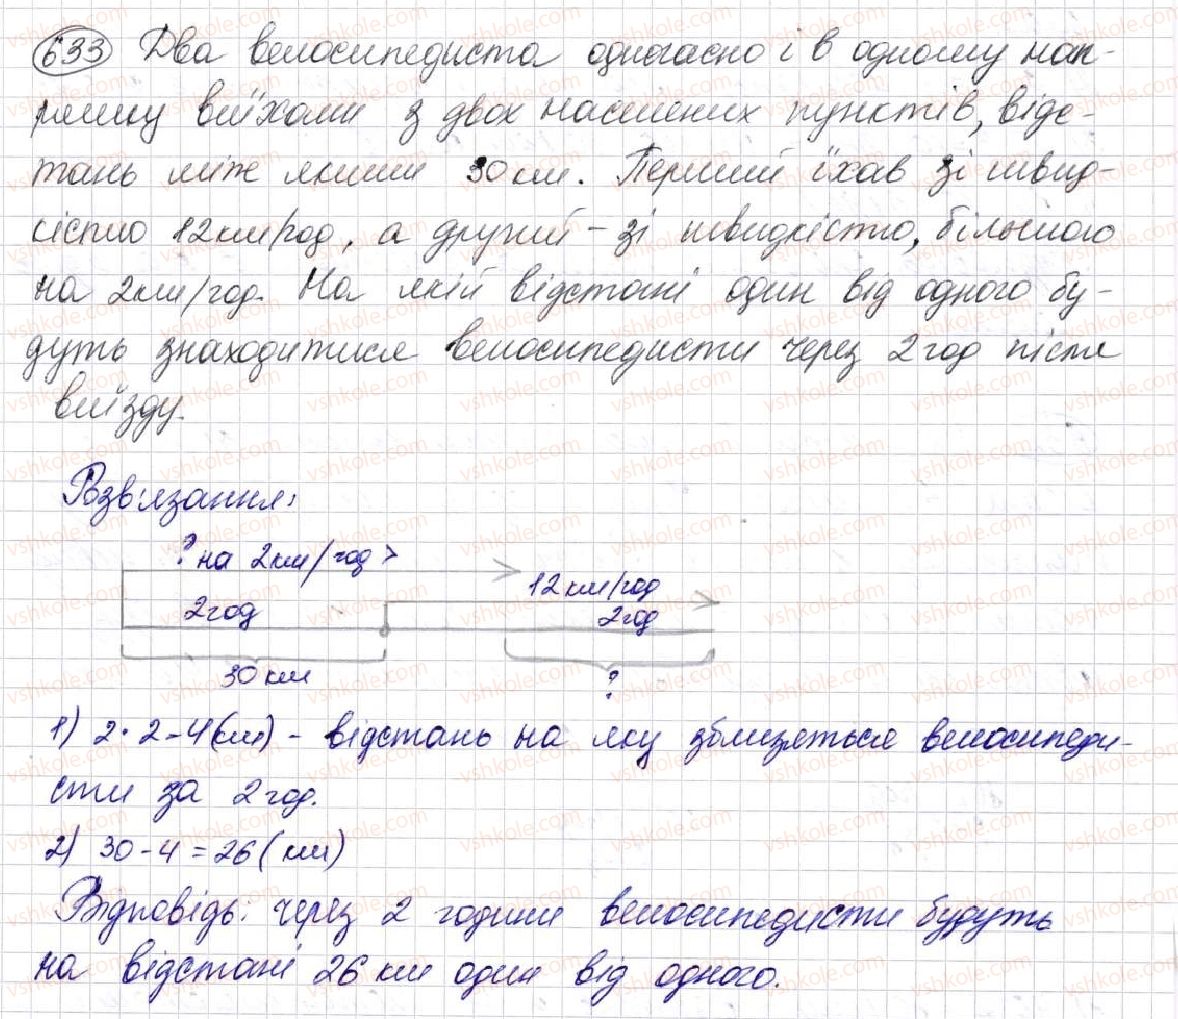 633 Два велосипедиста одночасно і в одному нап-
рямку виїхали з двох населених пунктів, відс-
тань між якими 30 км. Перший їхав зі швид-
кістю 12 км/год, а другий – зі швидкістю, більшою
на 2 км/год. На якій відстані один від одного бу-
дуть знаходитися велосипедисти через 2 год після
виїзду.
Розв'язання:
? на 2 км/год >
12 км/год
2 год
2 год
30 км
?
1) 2 · 2 = 4 (км) – відстань на яку зблизяться велосипеди-
сти за 2 год.
2) 30 - 4 = 26 (км)
Відповідь: через 2 години велосипедисти будуть
на відстані 26 км один від одного.